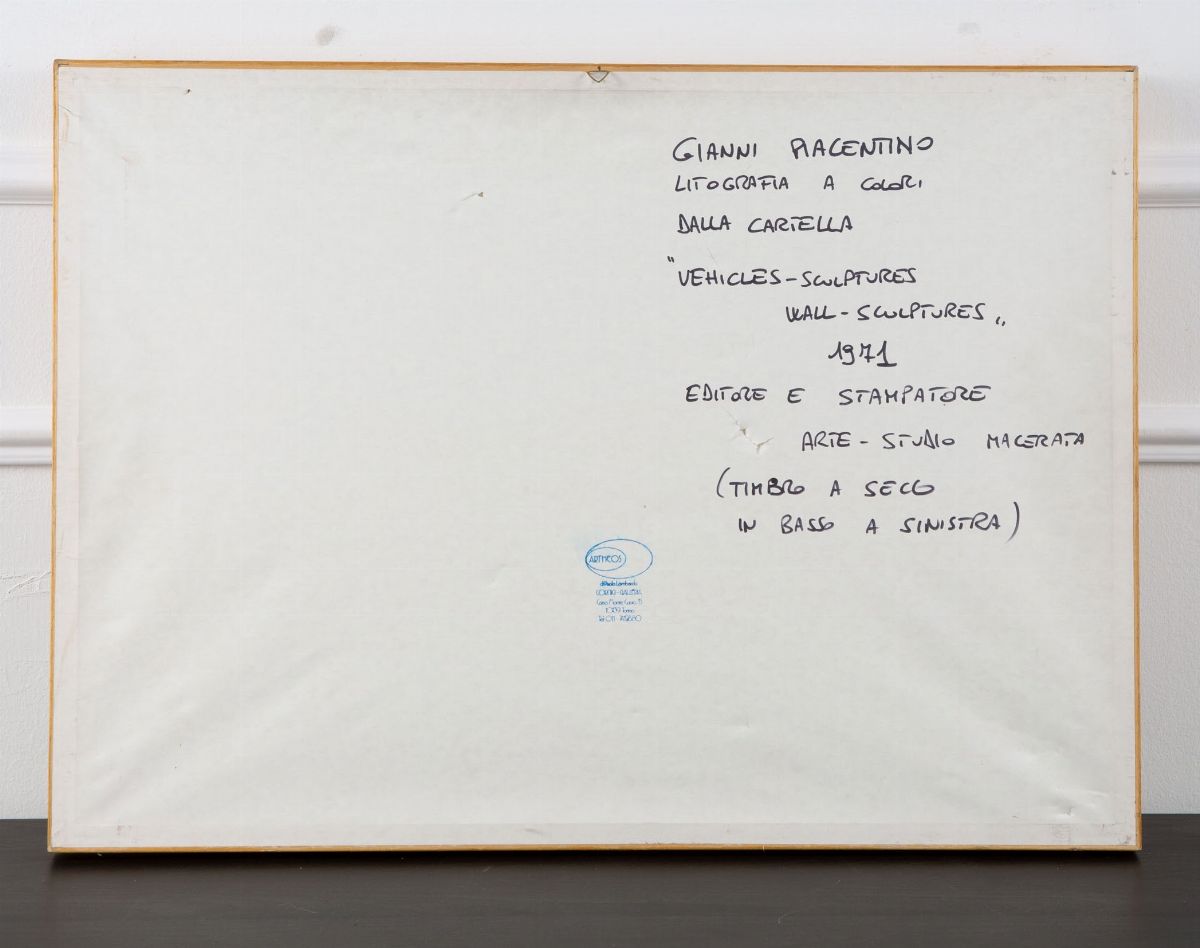 GIANNI PIACENTINO
LITOGRAFIA A COLORI
DALLA CARTELLA
"VEHICLES-SCULPTURES
WALL-SCULPTURES„
1971
EDITORE E STAMPATORE
ARTE-STUDIO MACERATA
(TIMBRO A SECCO
IN BASSO A SINISTRA)
ARTHEOS
di Paolo Lombardo
CORNICI-GALLERIA
Torino
Tel.011